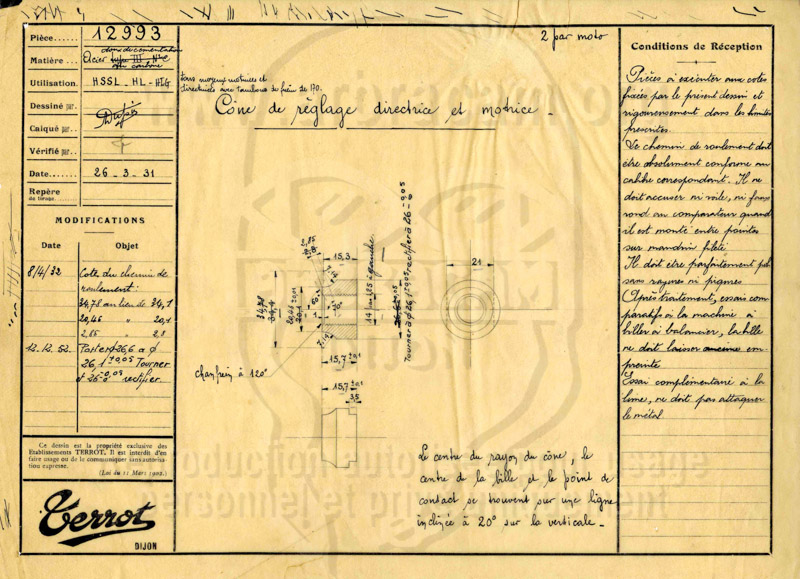 Pièce...... 12993
dans documentation
Matière... Acier type III - H°C
au carbone
Utilisation. HSSL - HL - HLG
Dessiné par.
Caiqué par..
Vérifié par...
Date....... 26-3-31
Repère
de tarage.
MODIFICATIONS
Date Objet
8/4/32 Cote du chemin de
roulement:
34,78 au lieu de 34,1
20,46 " 20,1
2,85 " 2,8
12.12.52. Porter φ26,6 à φ
26,1 +0,05 Tourner
et 26 -0,05 rectifier
Ce dessin est la propriété exclusive des
Etablissements TERROT. Il est interdit d'en
faire usage ou de le communiquer sans autorisa-
tion expresse.
(Loi du 11 Mars 1902.)
Terrot
DIJON
2 par moto
tous moyeux motrices et
directrices avec tambours de frein de 170.
Cône de règlage directrice et motrice -
15,3
2,85
2,8
34,78
34,1
20,46
20,1
14 lar. 25 à gauche
Tourner à φ 26,1 +0,05 rectifier à 26 -0,05
21
15,7 +0,1
15,7 +0,1
3,5
chanfrein à 120°
Le centre du rayon du cône, le
centre de la bille et le point de
contact se trouvent sur une ligne
inclinée à 20° sur la verticale -
Conditions de Réception
Pièces à exécuter aux cotes
fixées par le présent dessin et
rigoureusement dans les limites
prescrites.
Le chemin de roulement doit
être absolument conforme au
calibre correspondant. Il ne
doit accuser ni voile, ni faux
rond au comparateur quand
il est monté entre pointes
sur mandrin fileté
Il doit être parfaitement poli
sans rayures ni piqures
Après traitement, essais com-
paratifs à la machine à
biller à balancier, la bille
ne doit laisser aucune em-
preinte
Essai complémentaire à la
lime, ne doit pas attaquer
le métal.